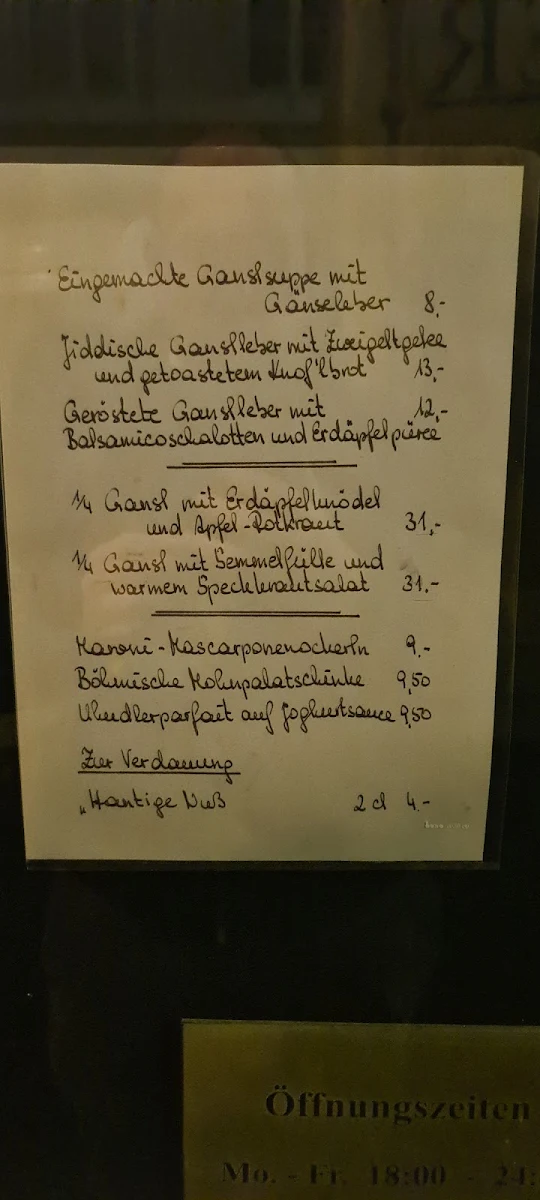 Eingemachte Ganslsuppe mit
Gänseleber 8,-
Jiddische Ganslleber mit Zweigeltgelee
und getoastetem Knof'lbrot 13,-
Geröstete Ganslleber mit 12,-
Balsamicoschalotten und Erdäpfelpüree
1/4 Gansl mit Erdäpfelknödel
und Apfel-Rotkraut 31,-
1/4 Gansl mit Semmelfülle und
warmem Speckkrautsalat 31.-
Maroni-Mascarponenockerln 9.-
Böhmische Mohnpalatschinke 9,50
Uhudlerparfait auf Joghurtsauce 9,50
Zur Verdauung
„Hantige Nuß 2 cl 4.-
Öffnungszeiten
Mo. - Fr. 18:00 - 24: